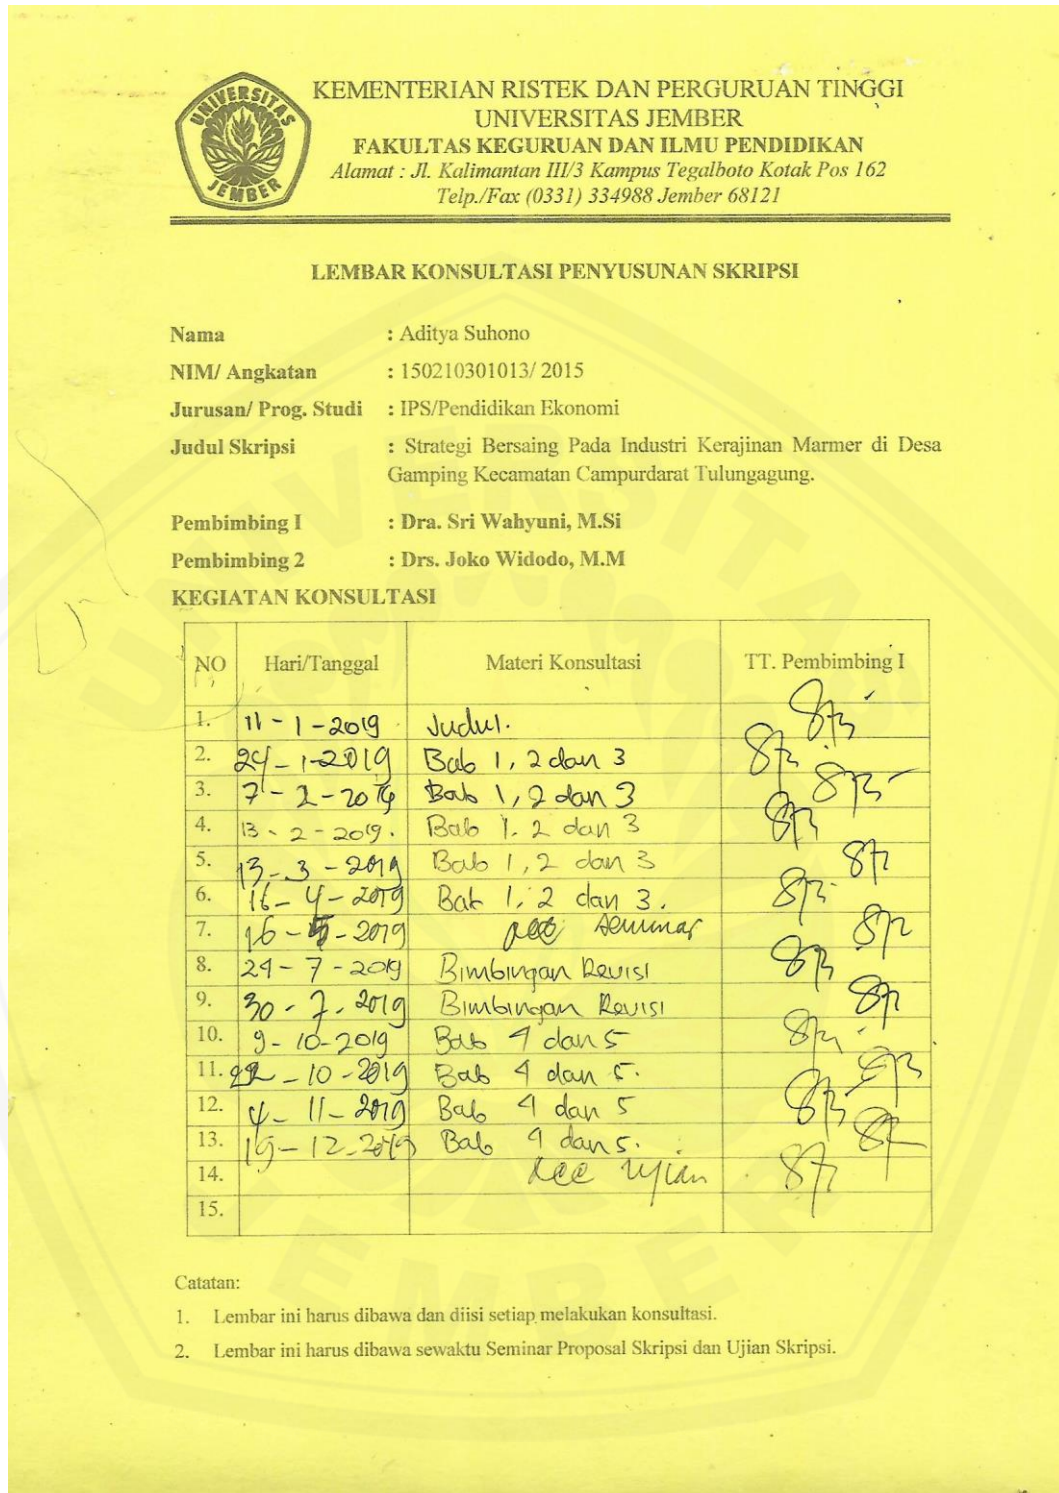 UNIVERSITAS JEMBER
KEMENTERIAN RISTEK DAN PERGURUAN TINGGI
UNIVERSITAS JEMBER
FAKULTAS KEGURUAN DAN ILMU PENDIDIKAN
Alamat : Jl. Kalimantan III/3 Kampus Tegalboto Kotak Pos 162
Telp./Fax (0331) 334988 Jember 68121
LEMBAR KONSULTASI PENYUSUNAN SKRIPSI
Nama : Aditya Suhono
NIM/ Angkatan : 150210301013/ 2015
Jurusan/ Prog. Studi : IPS/Pendidikan Ekonomi
Judul Skripsi : Strategi Bersaing Pada Industri Kerajinan Marmer di Desa
Gamping Kecamatan Campurdarat Tulungagung.
Pembimbing I : Dra. Sri Wahyuni, M.Si
Pembimbing 2 : Drs. Joko Widodo, M.M
KEGIATAN KONSULTASI
NO Hari/Tanggal Materi Konsultasi TT. Pembimbing I
1. 11 - 1 - 2019 Judul.
2. 24 - 1 - 2019 Bab 1, 2 dan 3
3. 7 - 2 - 2019 Bab 1, 2 dan 3
4. 13 - 2 - 2019. Bab 1. 2 dan 3
5. 13 - 3 - 2019 Bab 1, 2 dan 3
6. 16 - 4 - 2019 Bab 1, 2 dan 3.
7. 16 - 5 - 2019 acc seminar
8. 29 - 7 - 2019 Bimbingan Revisi
9. 30 - 7 - 2019 Bimbingan Revisi
10. 9 - 10 - 2019 Bab 4 dan 5
11. 22 - 10 - 2019 Bab 4 dan 5.
12. 4 - 11 - 2019 Bab 4 dan 5
13. 19 - 12 - 2019 Bab 4 dan 5.
14. Acc Ujian
15.
Catatan:
1. Lembar ini harus dibawa dan diisi setiap melakukan konsultasi.
2. Lembar ini harus dibawa sewaktu Seminar Proposal Skripsi dan Ujian Skripsi.